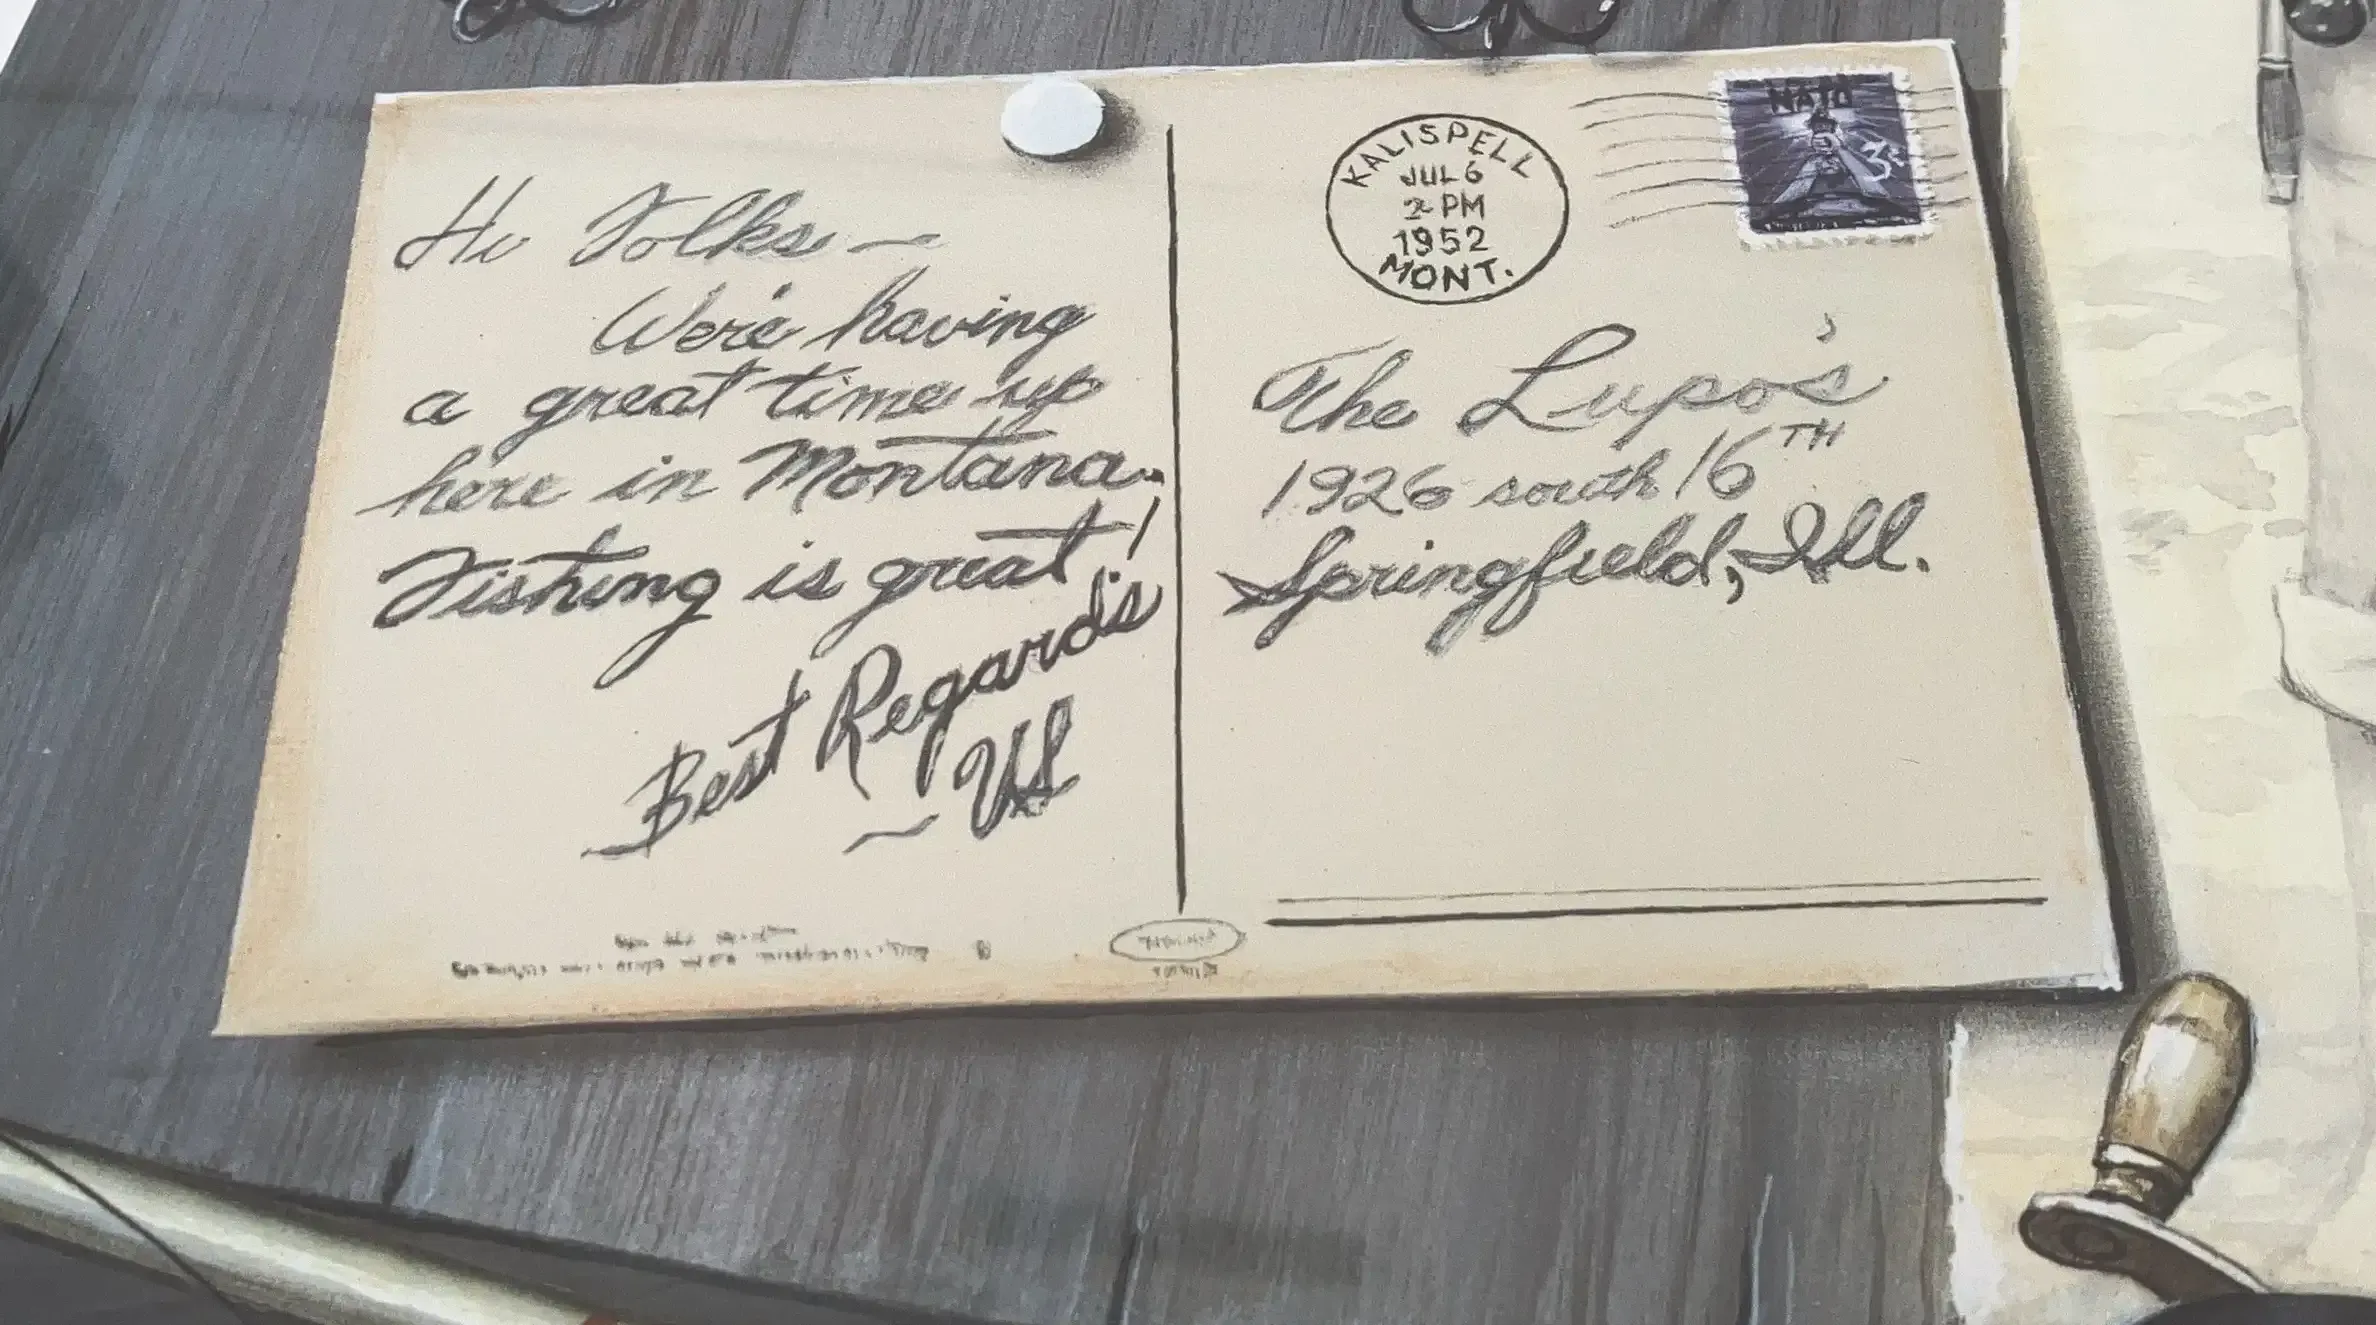 Hi Folks —
We're having
a great time up
here in Montana.
Fishing is great!
Best Regards
~ US
KALISPELL
JUL 6
2 PM
1952
MONT.
NATO
3¢
The Lupo's
1926 south 16TH
Springfield, Ill.